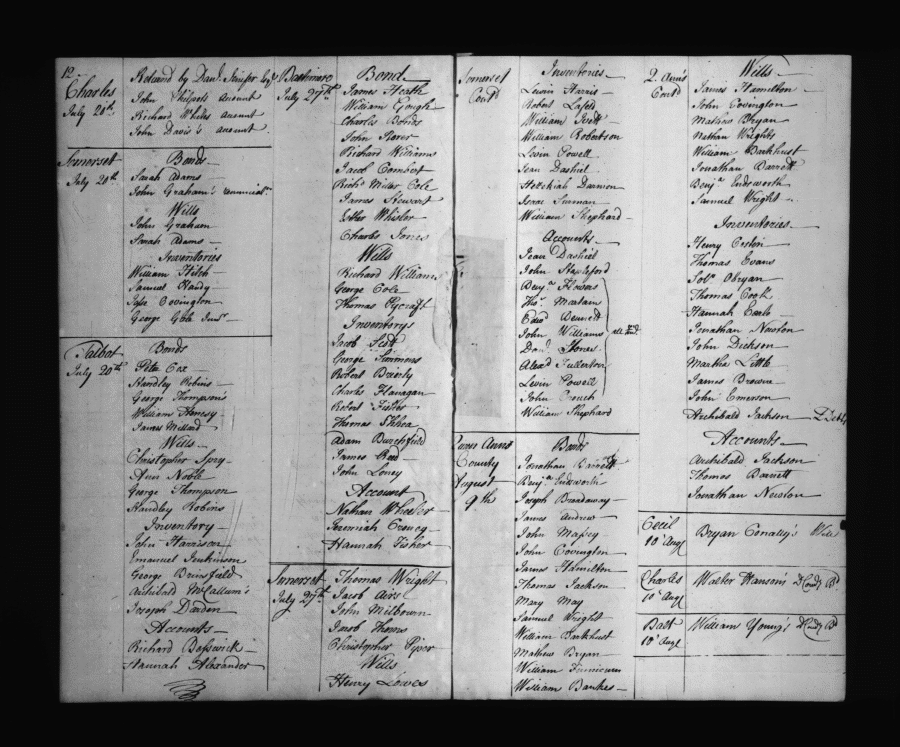 12
Charles
July 20th
Returnd by Danl. Jenifer Esqr
John Philpots account
Richard Wheles account
John Davis's account
Somerset
July 20th
Bonds
Sarah Adams
John Graham's renunciatn
Wills
John Graham
Sarah Adams
Inventories
William Fitch
Samuel Handy
Covington
George Gale Junr
Talbot
July 20th
Bonds
Peter Cox
Handley Robins
George Thompson's
William Hemesy
James Millard
Wills
Christopher Spry
Ann Noble
George Thompson
Handley Robins
Inventory
John Harrison
Emanuel Jenkinson
George Brinsfield
Archibald McCallum's
Joseph Darden
Accounts
Richard Basswick
Hannah Alexander
Baltimore
July 27th
Bond
James Heath
William Gough
Charles Bonds
John Rorer
Richard Williams
Jacob Combest
Richd Miller Cole
James Stewart
Esther Whisler
Charles Jones
Wills
Richard Williams
George Cole
Thomas Pycraft
Inventorys
Jacob Scott
George Simmons
Robert Brierly
Charles Flanagan
Robert Fisher
Thomas
Adam Burchfield
James Reed
John Loney
Account
Nathan Wheeler
Jeremiah Croney
Hannah Fisher
Somerset
July 27th
Thomas Wright
Jacob Airs
John Milbourn
Jacob
Christopher Piper
Wills
Henry Lowes
Somerset
Contd
Inventories
Levin Harris
Robert
William Scott
William Robertson
Levin Powell
Jean Dashiel
Hezekiah Dorman
Isaac Surman
William Shephard
Accounts
Jean Dashiel
John Stapleford
Benja Flowers
Thos. Marlam
Edwd Bennett
John Williams
Danl. Hones
Alexd Fullerton
Levin Powell
John Crouch
William Shephard
Queen Anns
County
August
9th
Bonds
Jonathan Barrett
Benja Endsworth
Joseph Broadaway
James Andrew
John Massey
John Covington
James Hamilton
Thomas Jackson
Mary May
Samuel Wright
William Barkhust
Mathew Bryan
William Finnicum
William Banks
2. Anns
Contd
Wills
James Hamilton
John Covington
Mathew Bryan
Nathan Wrights
William Barkhust
Jonathan Barrett
Benja Endsworth
Samuel Wright
Inventories
Henry Costin
Thomas Evans
Obryan
Thomas Cook
Hannah Earle
Jonathan Newton
John Dickson
Martha Little
James Browne
John Emerson
Archibald Jackson L Debts
Accounts
Archibald Jackson
Thomas Barrett
Jonathan Newton
Cecil
10 Augt
Bryan Conally's Will
Charles
10 Augt
Walter Hanson's
Balt
10 Augt
William Young's